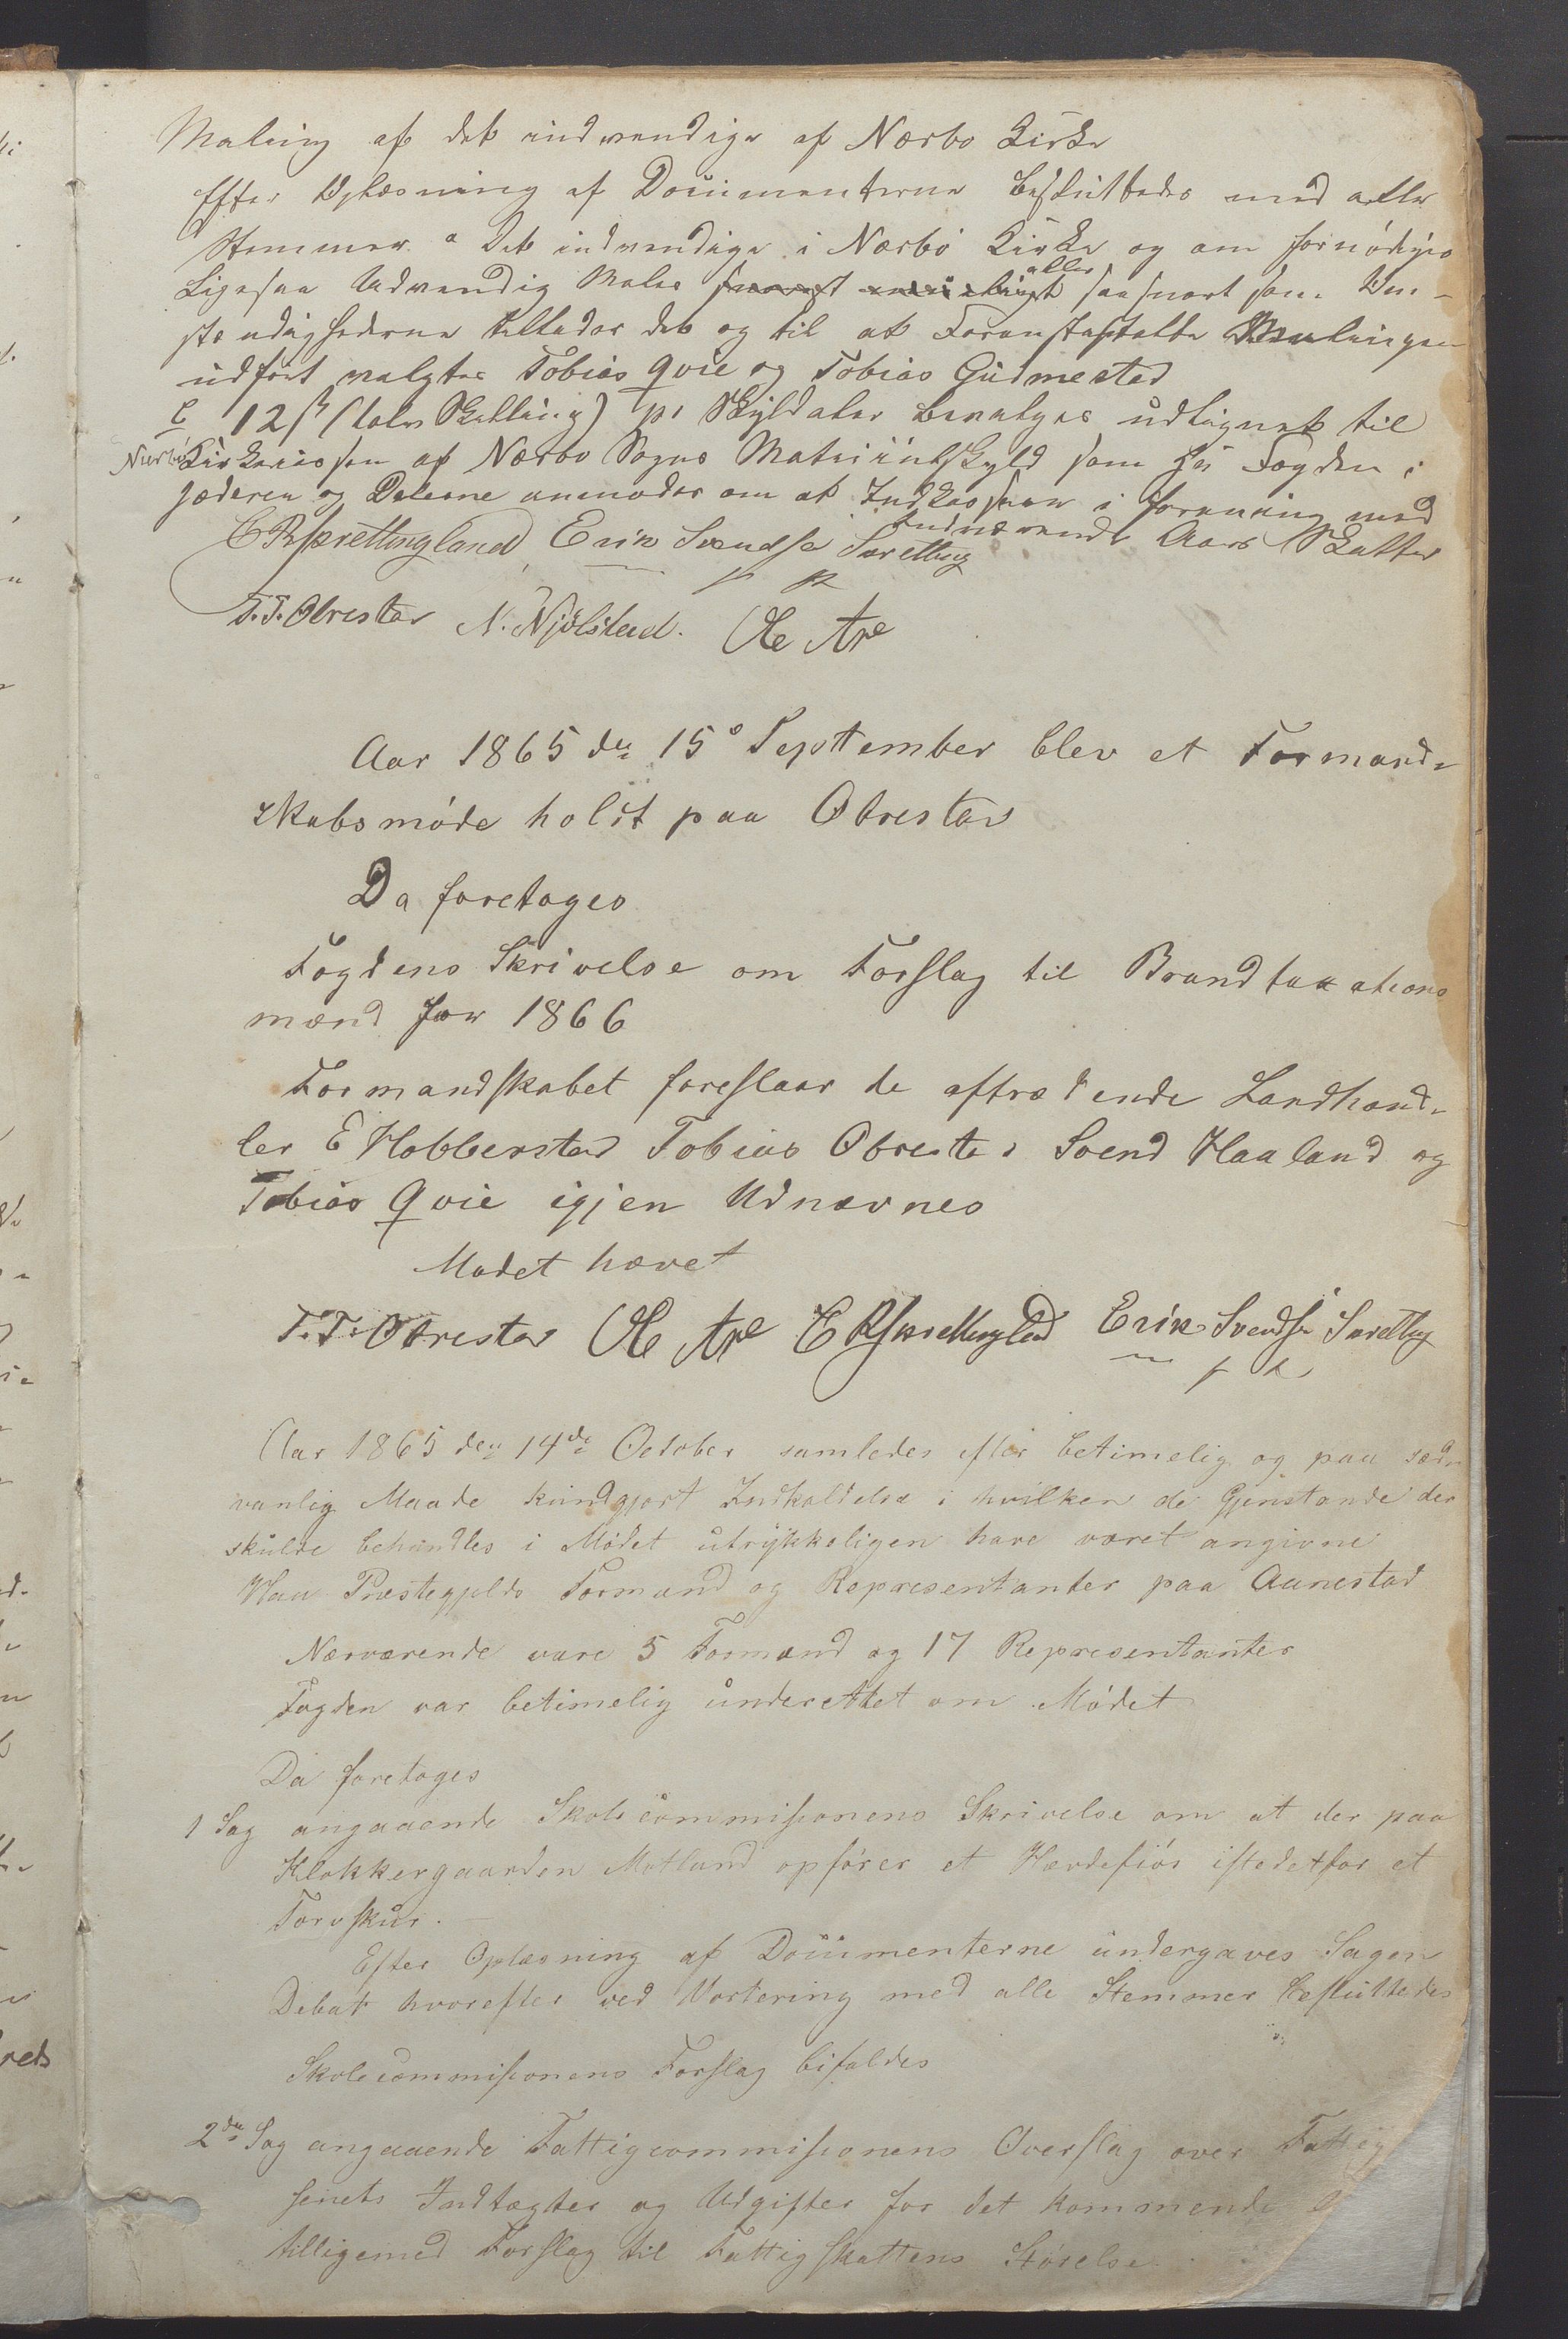 Maling af det indvendige af Nærbo Kirke
Efter Oplæsning af Documenterne besluttedes med alle
Stemmer a Det indvendige i Nærbö Kirke og om fornödiges
Ligesaa Udvendig Males snarest muligst eller saasnart som Om-
stændighederne tillader det og til at Foranstaltte Malingen
udfört valgtes Tobias Qvie og Tobias Gudmestad
c 12 ß (tolv Skilling) pr Skylddaler bevalges udlignet til
Nærbö Kirkecasse af Nærbo Sogns Matriculskyld som Hr Fogden i
Jæderen og Dalerne anmodes om at Indkassere i forening med
Indnærvende Aars Skatter
E R Sprettingland Erik Svendse Særetting
T. T. Obrestad N. Njölstad. Ole Are
Aar 1865 den 15de September blev et Formand-
skabsmöde holdt paa Obrestad
Da foretoges
Fogdens Skrivelse om Forslag til Brandtaxations
mænd for 1866
Formandskabet foreslaar de aftrædende Landhand-
ler E Hobberstad Tobias Obrestad Svend Haaland og
Tobias Qvie igjen Udnævnes
Mødet hævet
T. T. Obrestad Ole Are E R Sprettingland Erik Svendse Særetting
Aar 1865 den 14de October samledes efter betimelig og paa sæd-
vanlig Maade kundgjort Indkaldelse i hvilken de Gjenstande der
skulde behandles i Mödet utrykkeligen have været angivne
Haa Præstegjelds Formænd og Representanter paa Aanestad
Nærværende vare 5 Formænd og 17 Representanter
Fogden var betimelig underettet om Mödet
Da foretoges
1 Sag angaaende Skolecommissionens Skrivelse om at der paa
Klokkergaarden Motland opförer et Hærdefiös istedetfor et
Torvskur.
Efter Oplæsning af Documenterne undergaves Sagen
Debat hvorefter ved Vortering med alle Stemmer besluttedes
Skolecommissionens Forslag bifaldes
2den Sag angaaende Fattigcommissionens Overslag over Fattig
senets Indtægter og Udgifter for det kommende
tilligemed Forslag til Fattigskattens Störelse.